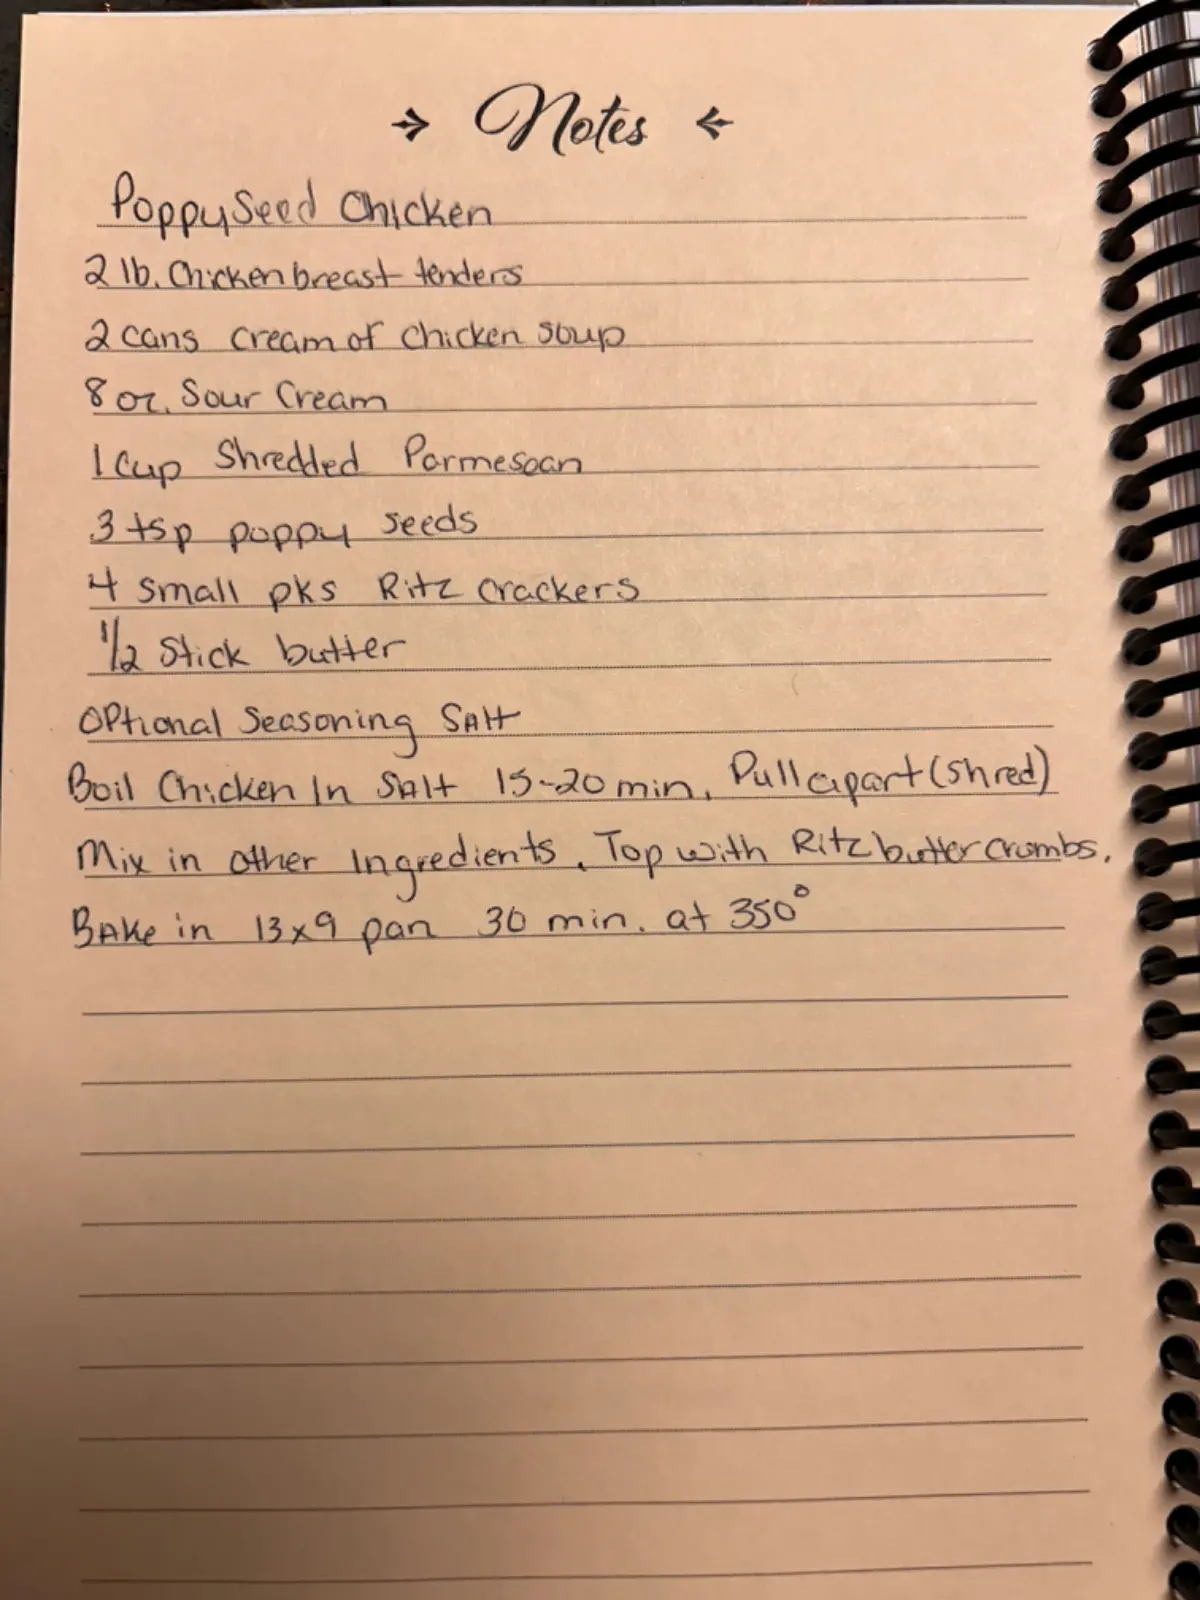 Notes
Poppy Seed Chicken
2 lb. Chicken breast tenders
2 cans cream of chicken soup
8 oz. Sour Cream
1 Cup Shredded Parmesean
3 tsp poppy seeds
4 small pks Ritz crackers
1/2 Stick butter
Optional Seasoning Salt
Boil Chicken In Salt 15-20 min. Pull apart (shred)
Mix in other Ingredients. Top with Ritz butter crumbs.
Bake in 13x9 pan 30 min. at 350°